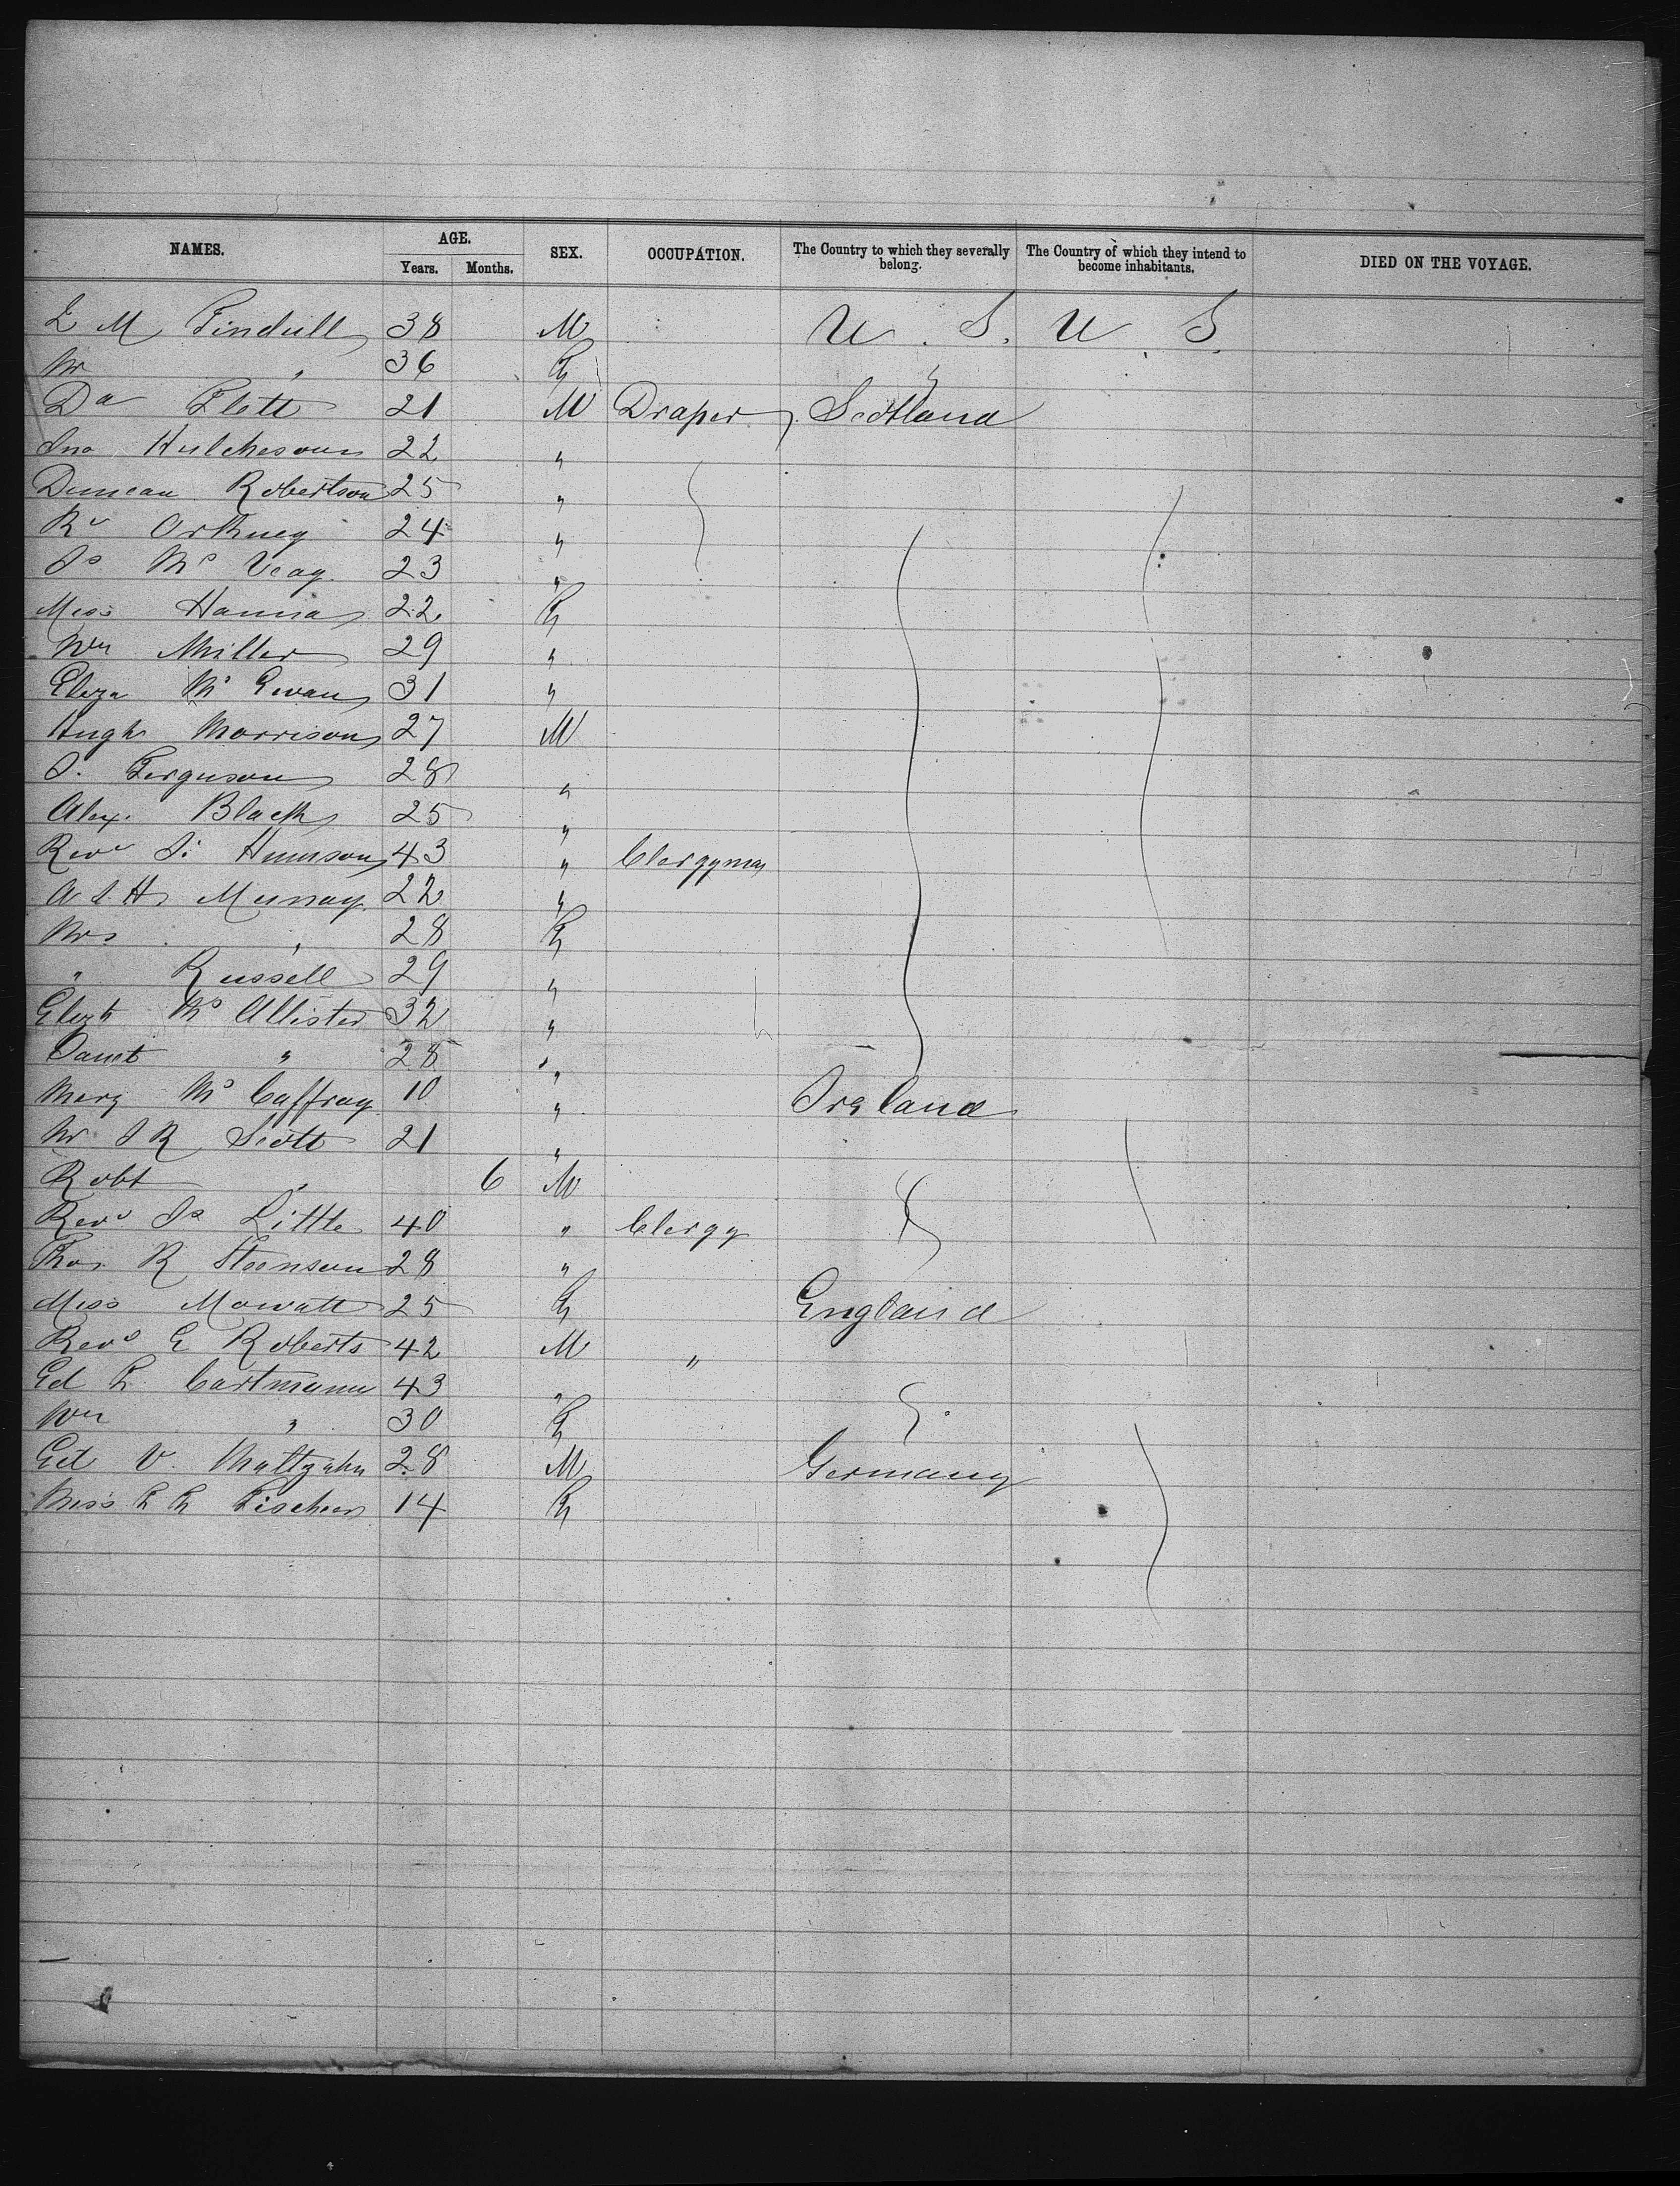 NAMES. AGE. SEX. OCCUPATION. The Country to which they severally belong. The Country of which they intend to become inhabitants. DIED ON THE VOYAGE.
Years. Months.
L M Tindull 38 M U. S. U. S.
" 36 F
Da Flett 21 M Draper Scotland
Jno Hutcheson 22 "
Duncan Robertson 25 "
Orkney 24 "
Js Mc Veag 23 "
Miss Hanna 22 F
Miller 29 "
Eliza Mc Ewan 31 "
Hugh Morrison 27 M
J. Ferguson 28 "
Alex. Black 25 "
Revd J. 43 " Clergyman
A J H Murray 22 "
Mrs " 28 F
" Russell 29 "
Elizh Mc Allister 32 "
Janet " 28 "
Mary Mc Caffray 10 " Ireland
J R Scott 21 "
Robt " 6 M
Revd Js Little 40 " Clergy
Thos R Steenson 28 "
Miss Mowatt 25 F England
Revd E Roberts 42 M "
Ed F. Cartmann 43 "
" 30 F
V. Maltzahn 28 M Germany
Miss F F Fischer 14 F